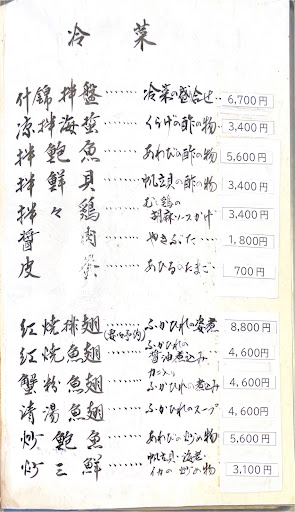 冷菜
什錦拌盤……冷菜の盛合せ 6,700円
涼拌海蜇……くらげの酢の物 3,400円
拌鮑魚……あわびの酢の物 5,600円
拌鮮貝……帆立貝の酢の物 3,400円
拌々鶏……むし鶏の胡麻ソースかけ 3,400円
醤肉……やきぶた 1,800円
皮蛋……あひるのたまご 700円
紅焼排翅……ふかひれの姿煮 8,800円
紅焼魚翅……ふかひれの醤油煮込み 4,600円
蟹粉魚翅……カニ入りふかひれの煮込み 4,600円
清湯魚翅……ふかひれのスープ 4,600円
炒鮑魚……あわびの炒め物 5,600円
炒三鮮……帆立貝・海老・イカの炒め物 3,100円